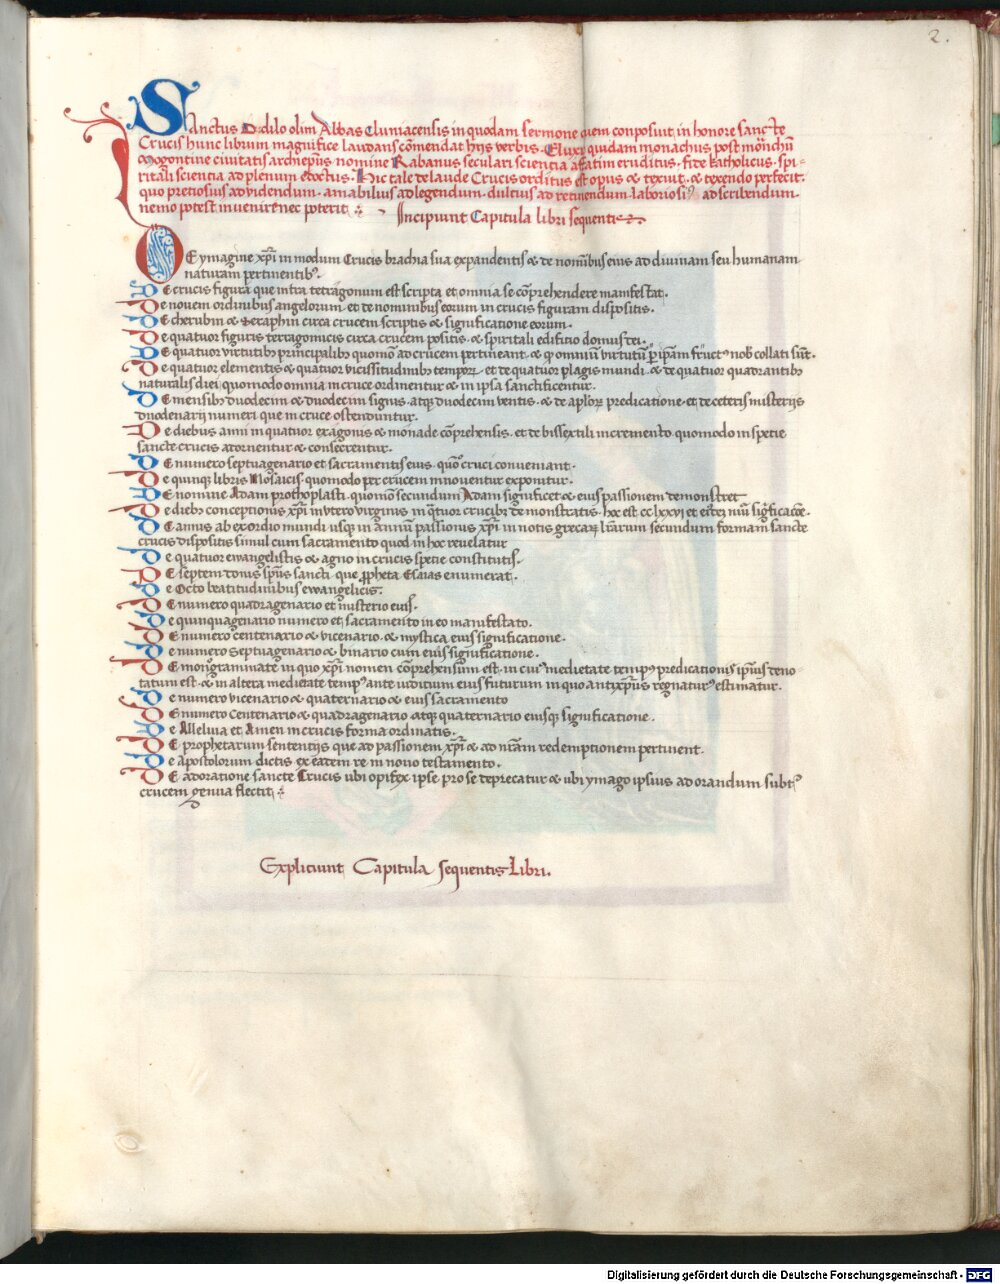 2.
Sanctus Odilo olim Abbas Cluniacensis in quodam sermone quem conposuit in honore sancte
Crucis hunc librum magnifice laudans cōmendat hijs verbis. Eluxit quidam monachus post mōdchū
Mogontine ciuitatis archiep̄us nomine Rabanus seculari sciencia affatim eruditus. fide katholicus. spi-
ritali sciencia ad plenum edoctus. Hic tale de laude Crucis orditus est opus & texuit. & texendo perfecit.
quo preciosius ad videndum. amabilius ad legendum. dulcius ad retinendum. laboriosi9 ad scribendum.
nemo potest inuenire nec poterit. Incipiunt Capitula libri sequentis
DE ymagine xp̄i in modum Crucis brachia sua expandentis & de nomībus eius ad diuinam seu humanam
naturam pertinentib9.
DE crucis figura que intra tetragonum est scripta et omnia se cōprehendere manifestat.
De nouem ordinibus angelorum. et de nominibus eorum in crucis figuram dispositis.
DE cherubin & Seraphin circa crucem scriptis & significatione eorum.
De quatuor figuris tetragonicis circa crucem positis. & spiritali edificio domus dei.
DE quatuor virtutib9 principalib9 quomō ad crucem pertineant. & q omniū virtutū p ip̄am fruct9 nob collati sūt.
De quatuor elementis & quatuor vicissitudinib9 tempoꝝ. et de quatuor plagis mundi. & de quatuor quadrantib9
naturalis diei quomodo omnia in cruce ordinentur & in ipsa sanctificentur.
DE mensib9 duodecim & duodecim signis. atq duodecim ventis. & de aploꝝ predicatione. et de ceteris misterijs
duodenarij numeri que in cruce ostenduntur.
De diebus anni in quatuor exagonis & monade cōprehensis. et de bissextili incremento quomodo in specie
sancte crucis adornentur & consecrentur.
DE numero septuagenario et sacramentis eius. quō cruci conueniant.
De quinq libris Mosaicis. quomodo per crucem innouentur exponitur.
DE nomine Adam prothoplasti. quomō secundum Adam significet & eius passionem demonstret
De dieb9 conceptionis xp̄i in vtero virginis in qtuor crucib9 demonstratis. hoc est cclxxvi et eius nūi significacōe.
DE annis ab exordio mundi usq in annū passionis xp̄i in notis grecaꝝ lrāꝝum secundum formam sancte
crucis dispositis simul cum sacramento quod in hoc reuelatur
De quatuor ewangelistis & agno in crucis specie constitutis.
DE septem donis sp̄us sancti. que ꝓpheta Esaias enumerat.
De Octo beatitudinibus ewangelicis.
DE numero quadragenario et misterio eius.
De quinquagenario numero et sacramento in eo manifestato.
DE numero centenario & vicenario. & mystica eius significatione.
De numero Septuagenario & binario cum eius significatione.
DE monogrammate in quo xp̄i nomen cōprehensum est. in cui9 medietate temp9 predicationis ip̄ius deno-
tatum est. & in altera medietate temp9 ante iudicium eius futurum in quo antixp̄us regnatur9 estimatur.
De numero vicenario & quaternario & eius sacramento
DE numero Centenario & quadragenario. atq quaternario eiusq significatione.
De Alleluia et Amen in crucis forma ordinatis.
DE prophetarum sententijs que ad passionem xp̄i & ad nrām redemptionem pertinent.
De Apostolorum dictis ex eadem re in nouo testamento.
DE adoratione sancte Crucis ubi opifex ipse pro se deprecatur & ubi ymago ipsius ad orandum subt9
crucem genua flectit
Expliciunt Capitula sequentis Libri.
Digitalisierung gefördert durch die Deutsche Forschungsgemeinschaft - DFG